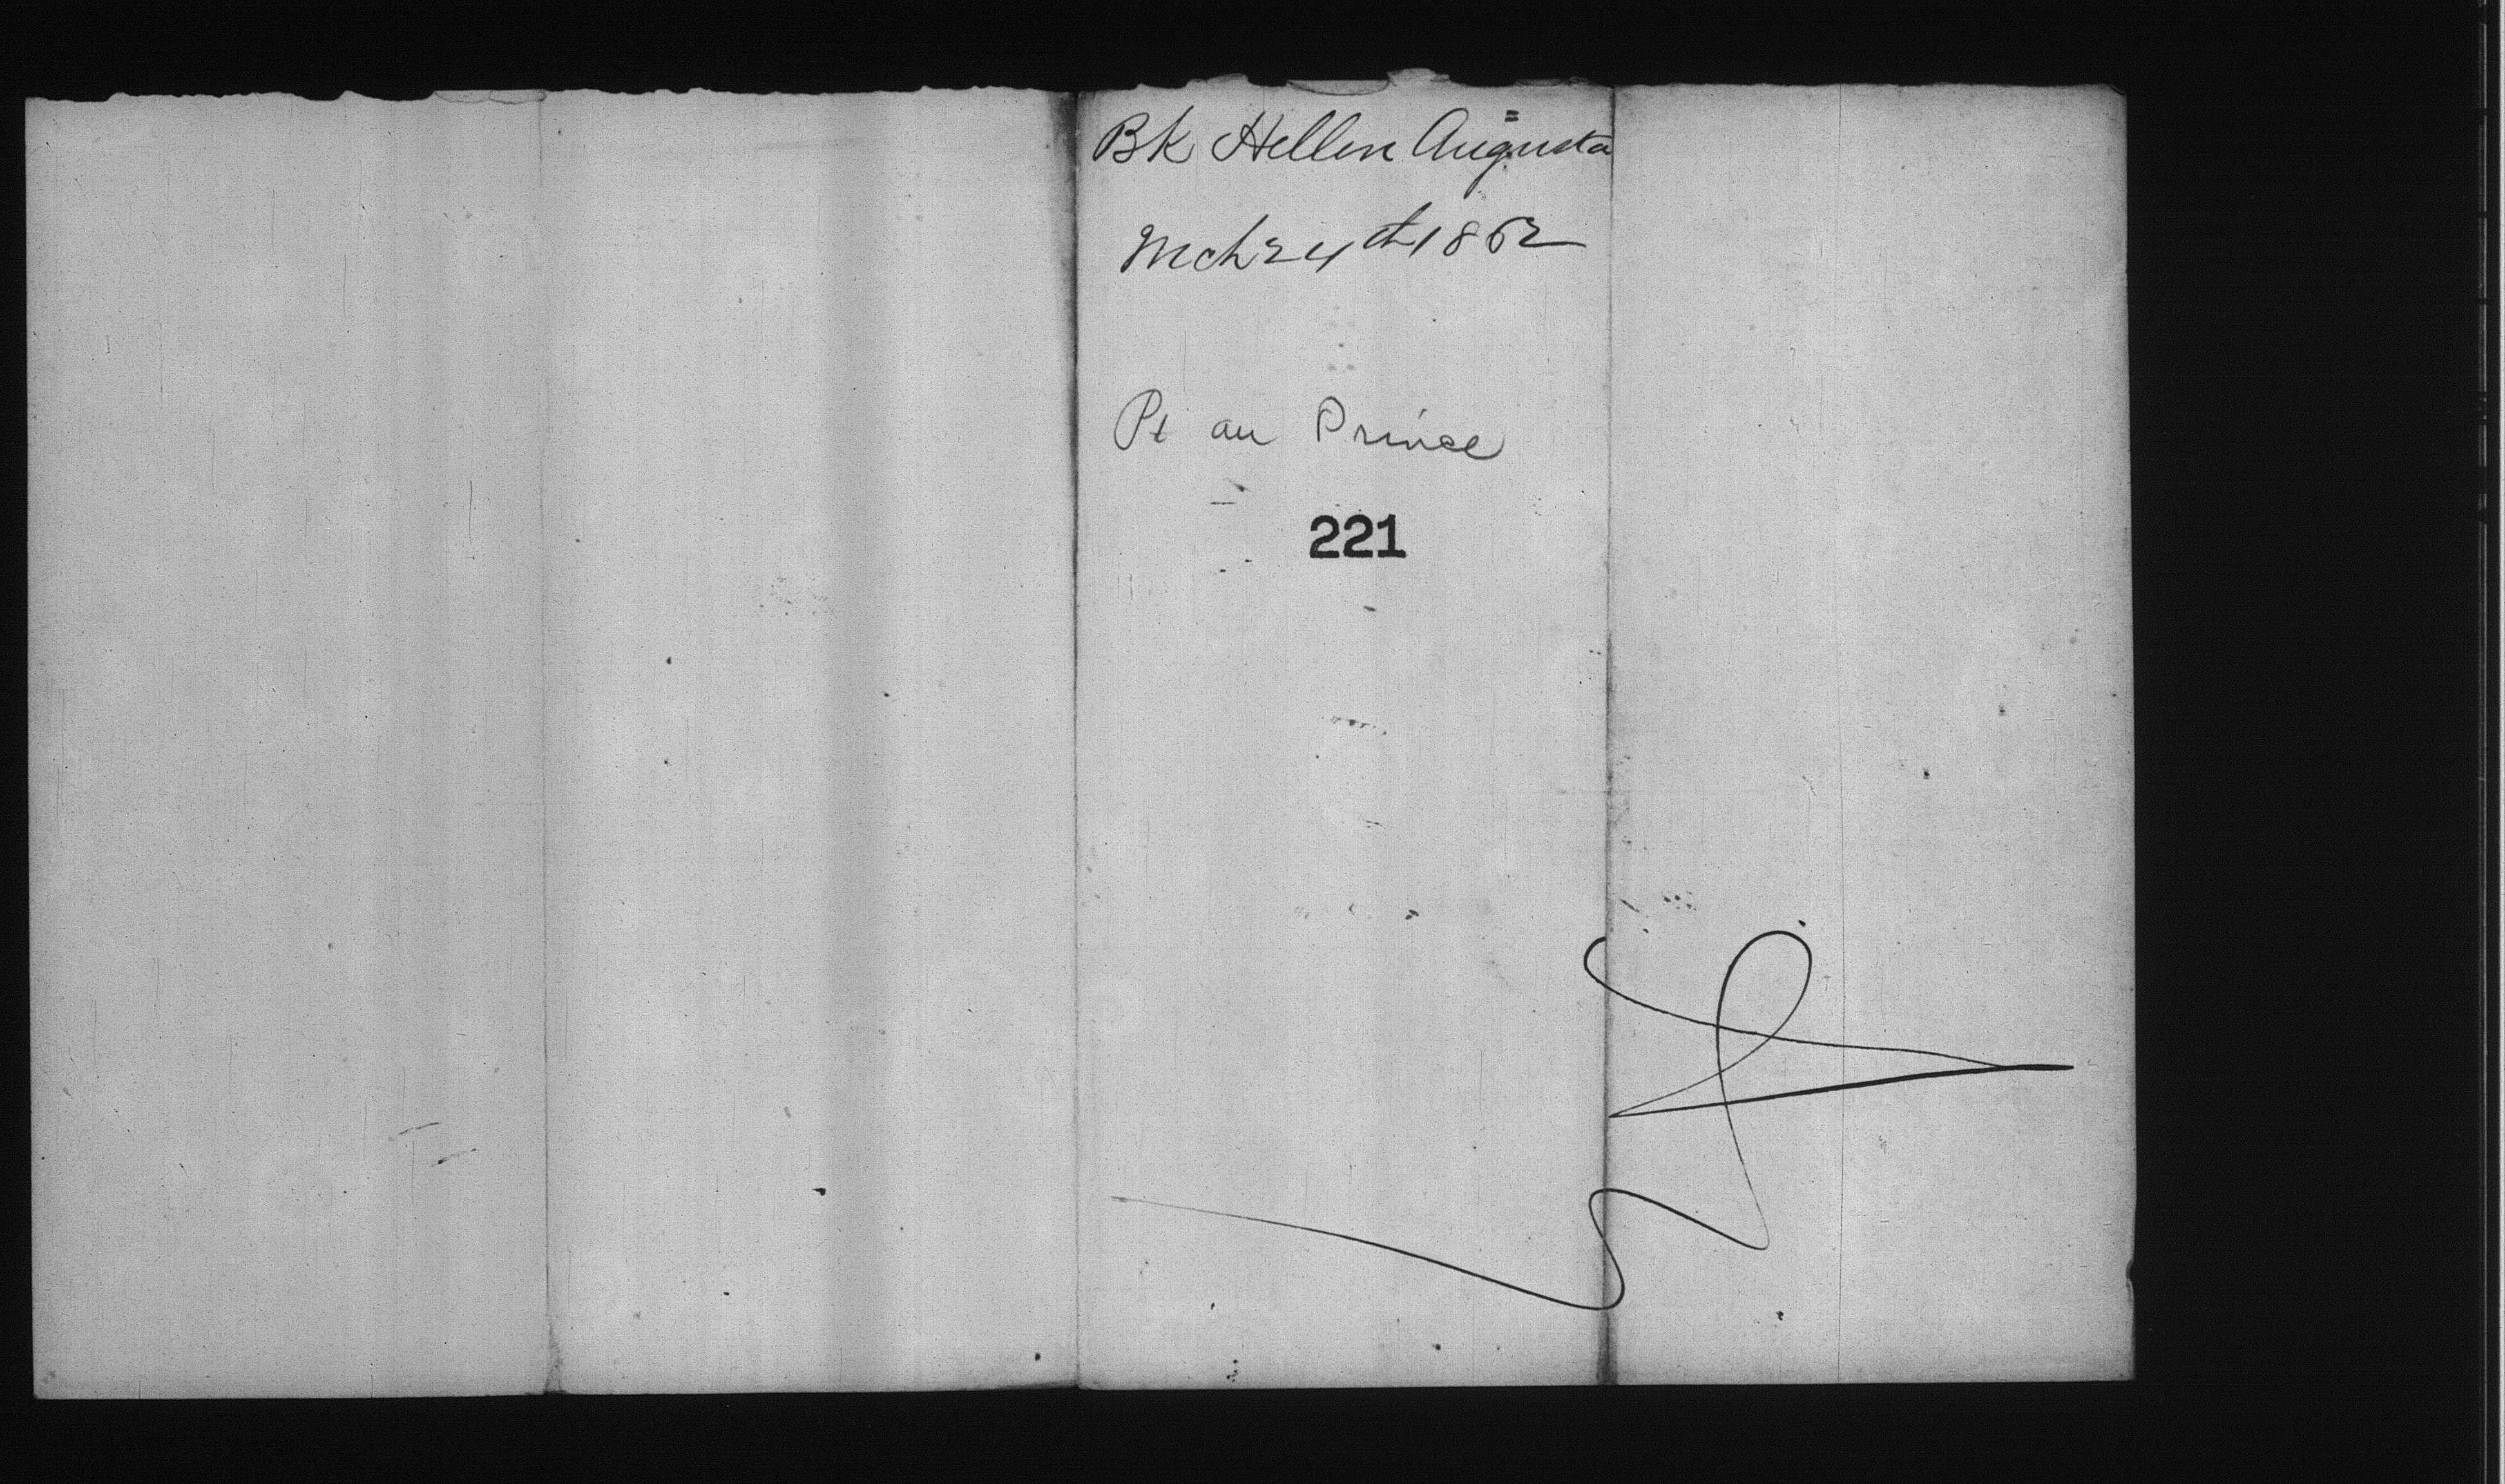 Bk Hellen Augusta
Mch 24th 1862
Pt au Prince
221